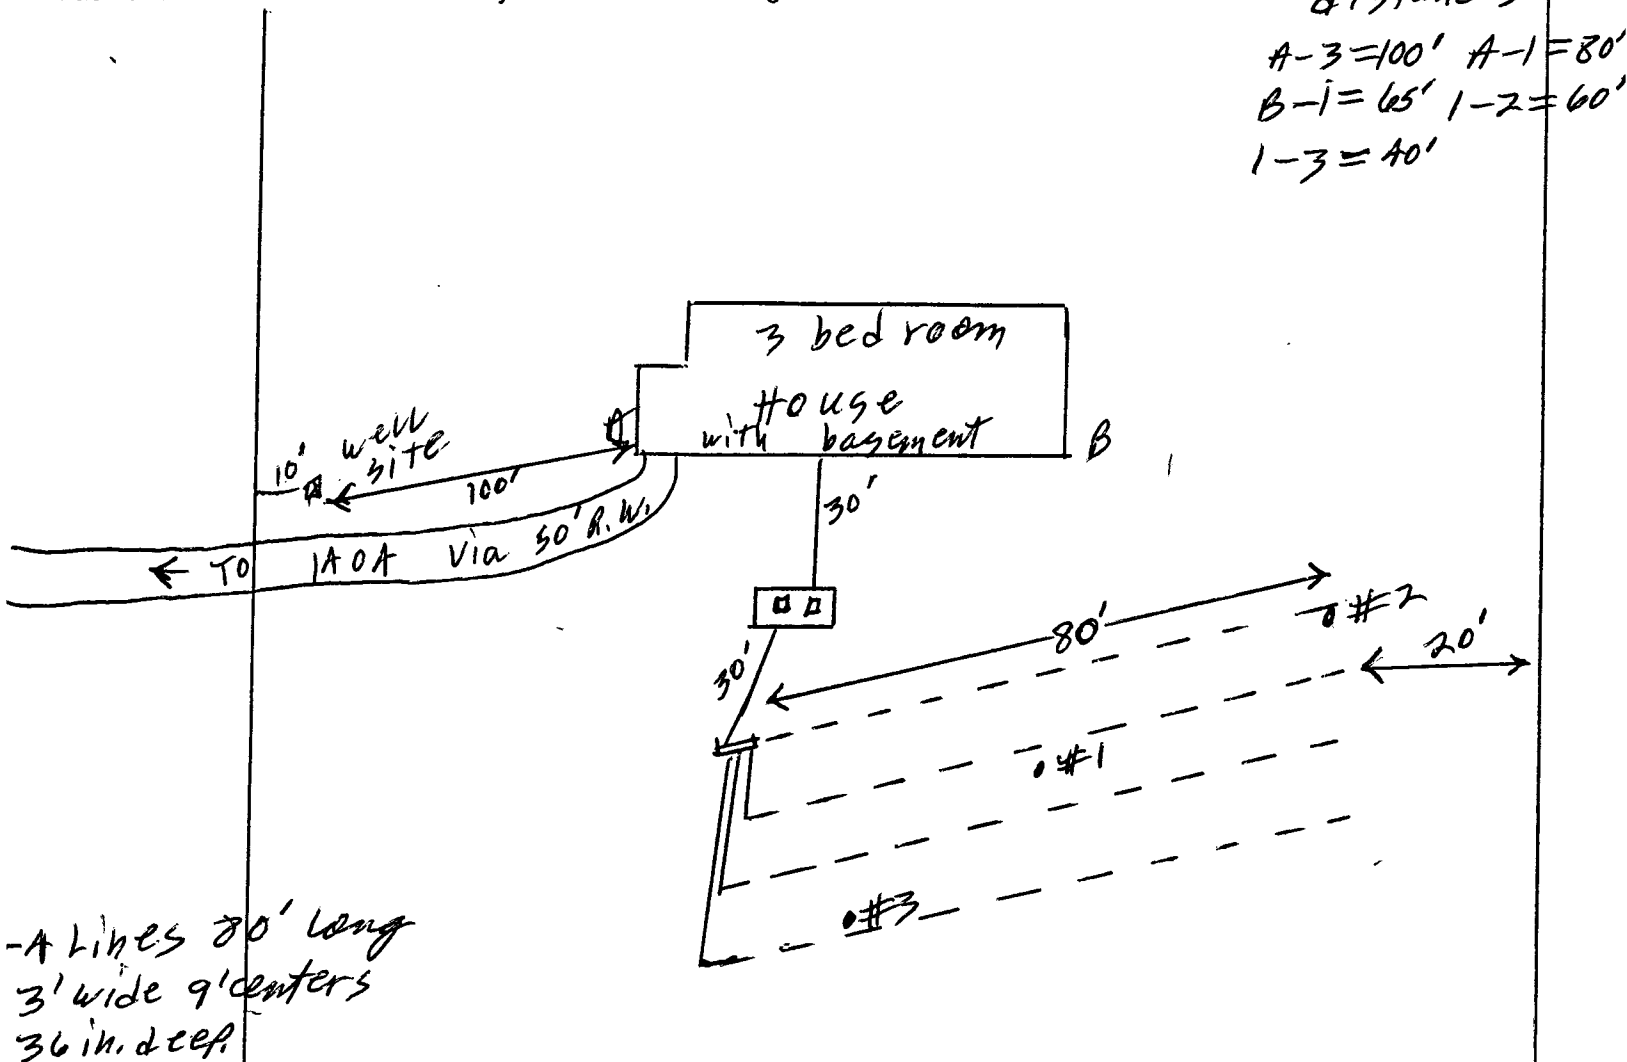 A-3=100' A-1=80'
B-1=65' 1-2=60'
1-3=40'
3 bed room
House
with basement
A
B
10'
well
site
100'
30'
← TO via 50' R.W.
80'
#2
20'
30'
#1
#3
Lines 80' long
3' wide 9' centers
36 in. deep.